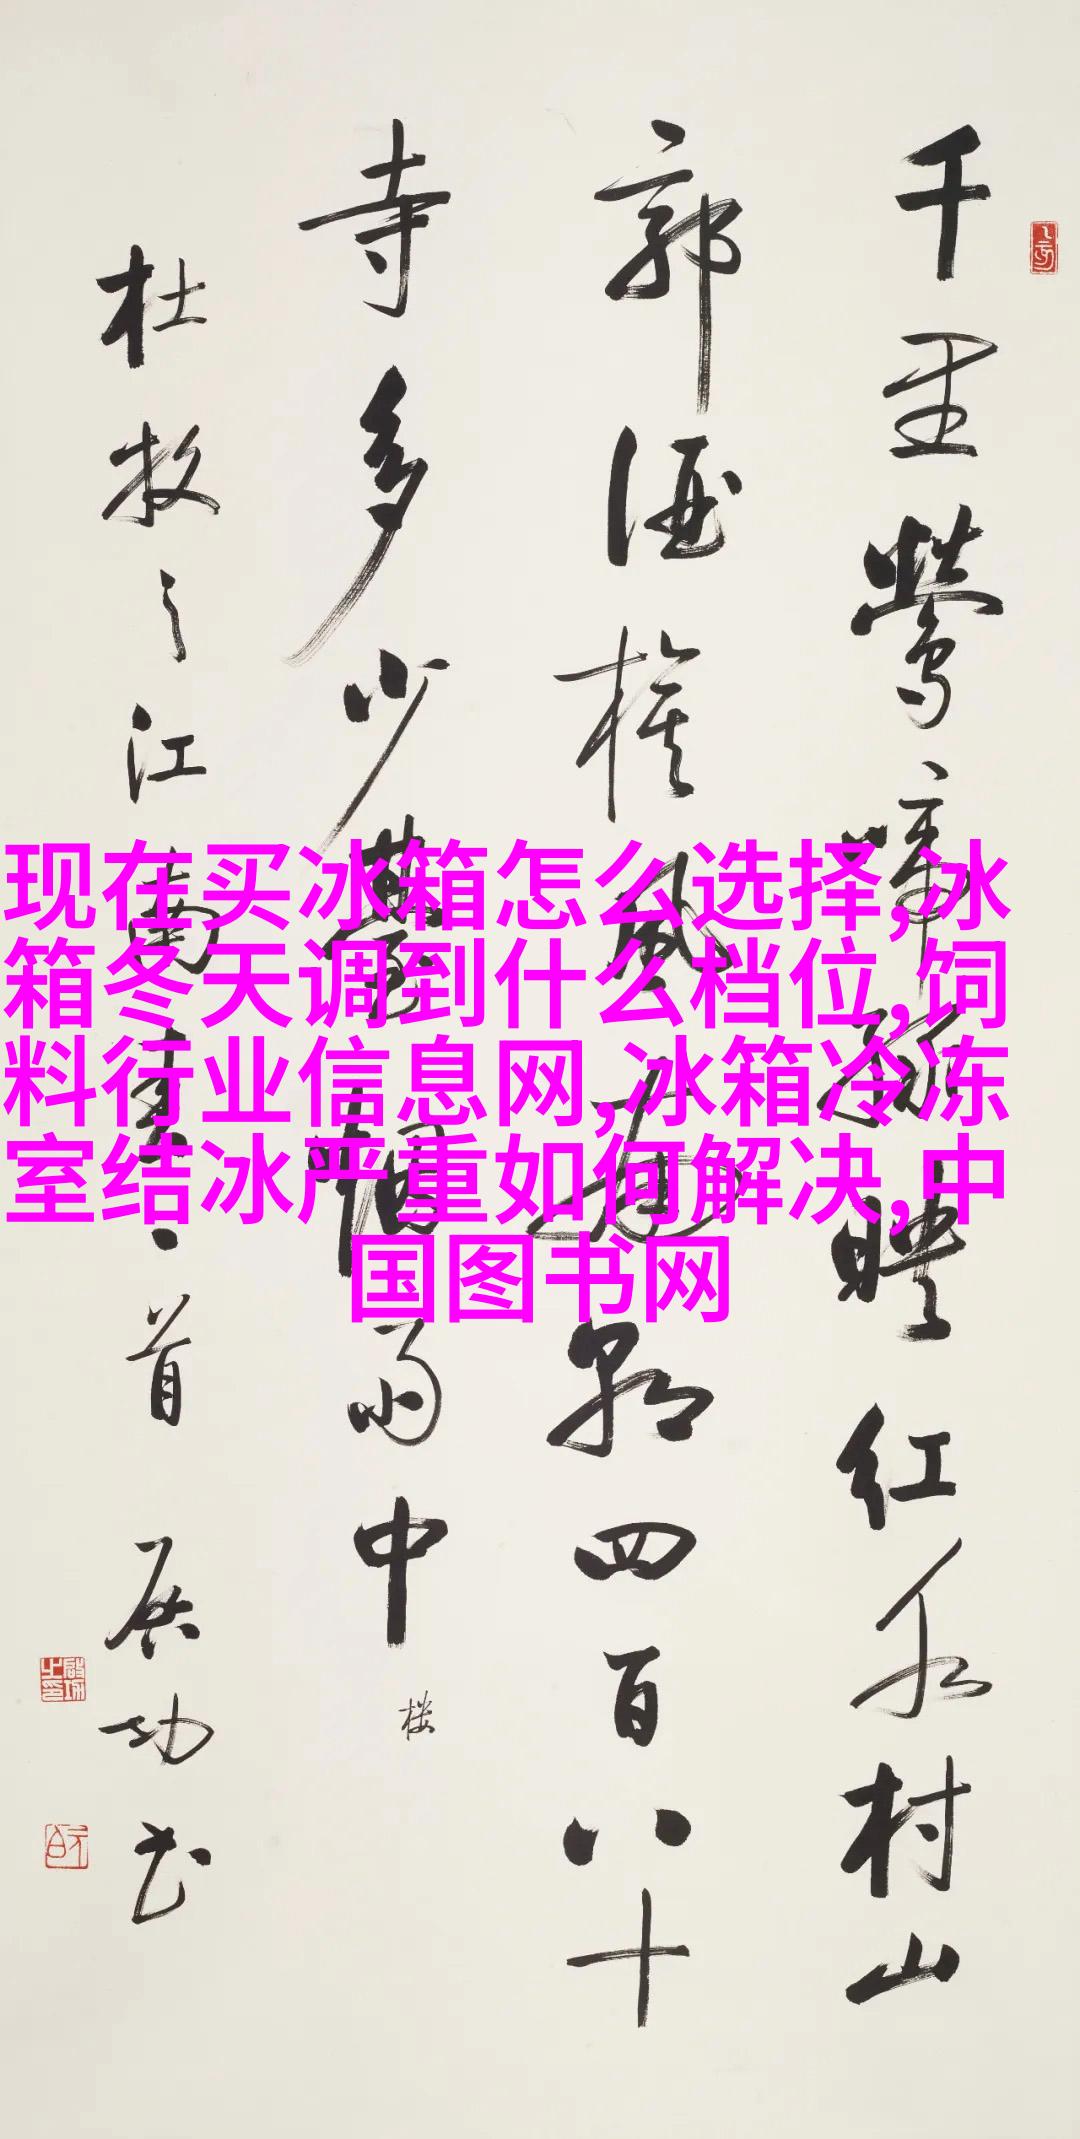 千里鶯啼綠映紅水村山
郭酒旗風南朝四百八十
寺多少臺烟雨中
楼
杜牧之江南春一首 启功书
现在买冰箱怎么选择,冰
箱冬天调到什么档位,饲
料行业信息网,冰箱冷冻
室结冰严重如何解决,中
国图书网